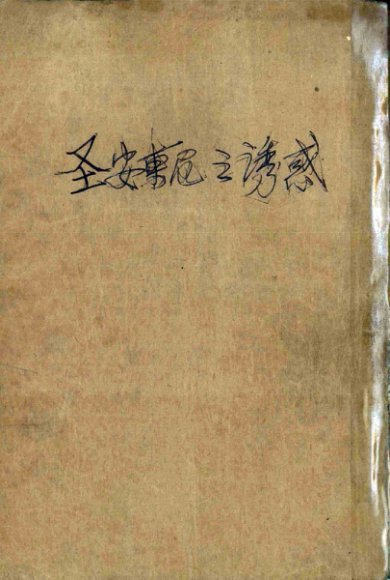 圣安東尼之诱惑